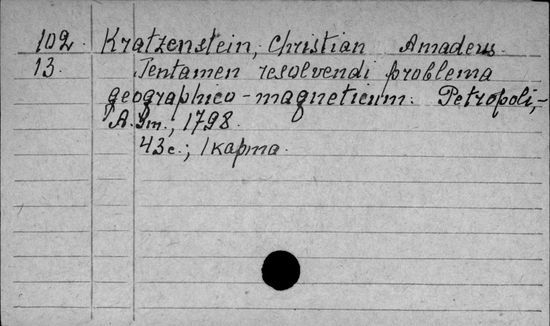 102. Kratzenstein, Christian Amadeus.
13. Tentamen resolvendi problema
geographico-magneticum. Petropoli,-
1798.
43с.; 1 карта.